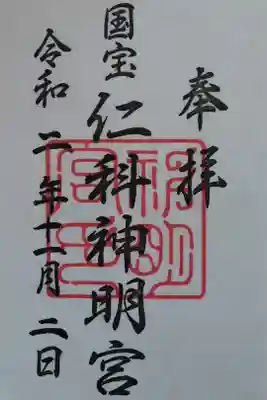 奉拝
国宝
仁科神明宮
令和二年十一月二日